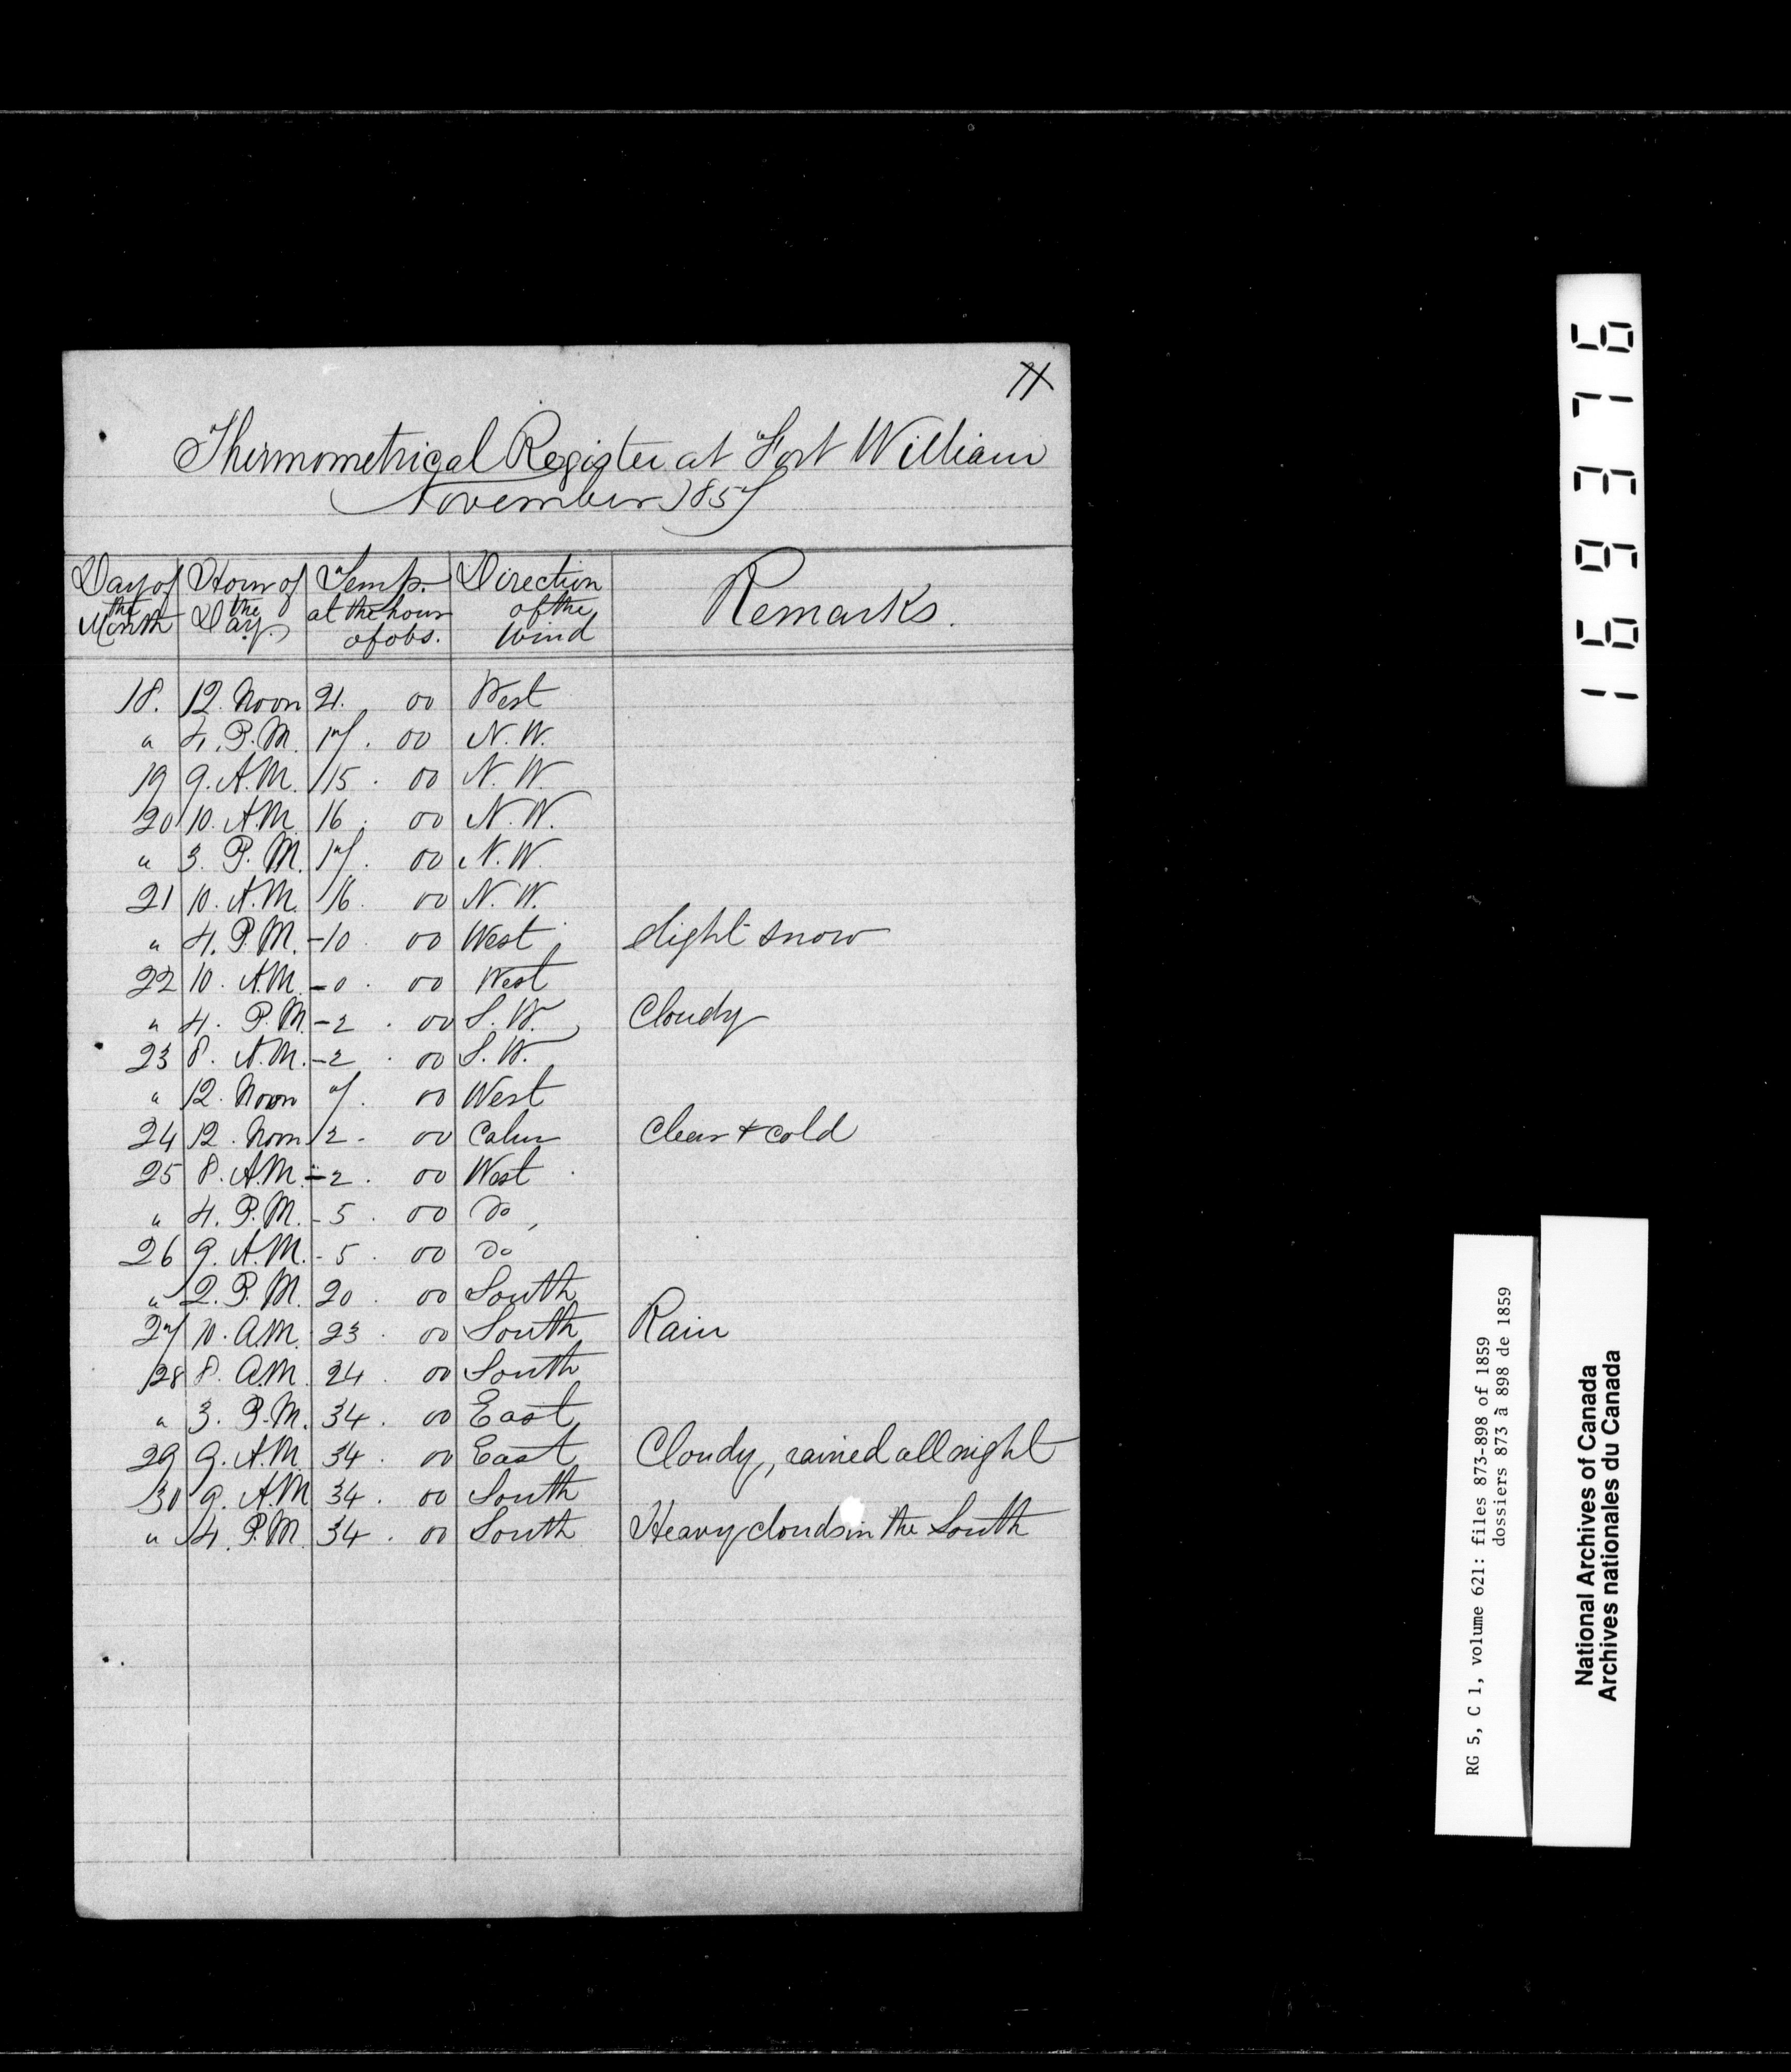 Thermometrical Register at Fort William
November 1857
Day of the Month | Hour of the Day. | Temp. at the hour of obs. | Direction of the Wind | Remarks.
18. 12. Noon 21. 00 West
" 4. P.M. 17. 00 N.W.
19 9. A.M. 15. 00 N.W.
20 10. A.M. 16. 00 N.W.
" 3. P.M. 17. 00 N.W.
21 10. A.M. 16. 00 N.W.
" 4. P.M. -10. 00 West slight snow
22 10. A.M. -0. 00 West
" 4. P.M. -2. 00 S.W. Cloudy
23 8. A.M. -2. 00 S.W.
" 12. Noon 7. 00 West
24 12. Noon 2. 00 Calm Clear & cold
25 8. A.M. -2. 00 West
" 4. P.M. -5. 00 Do
26 9. A.M. -5. 00 Do
" 2. P.M. 20. 00 South
27 10. A.M. 23. 00 South Rain
28 8. A.M. 24. 00 South
" 3. P.M. 34. 00 East
29 9. A.M. 34. 00 East Cloudy, rained all night
30 9. A.M. 34. 00 South
" 4. P.M. 34. 00 South Heavy clouds in the South
169376
RG 5, C 1, volume 621: files 873-898 of 1859
dossiers 873 à 898 de 1859
National Archives of Canada
Archives nationales du Canada